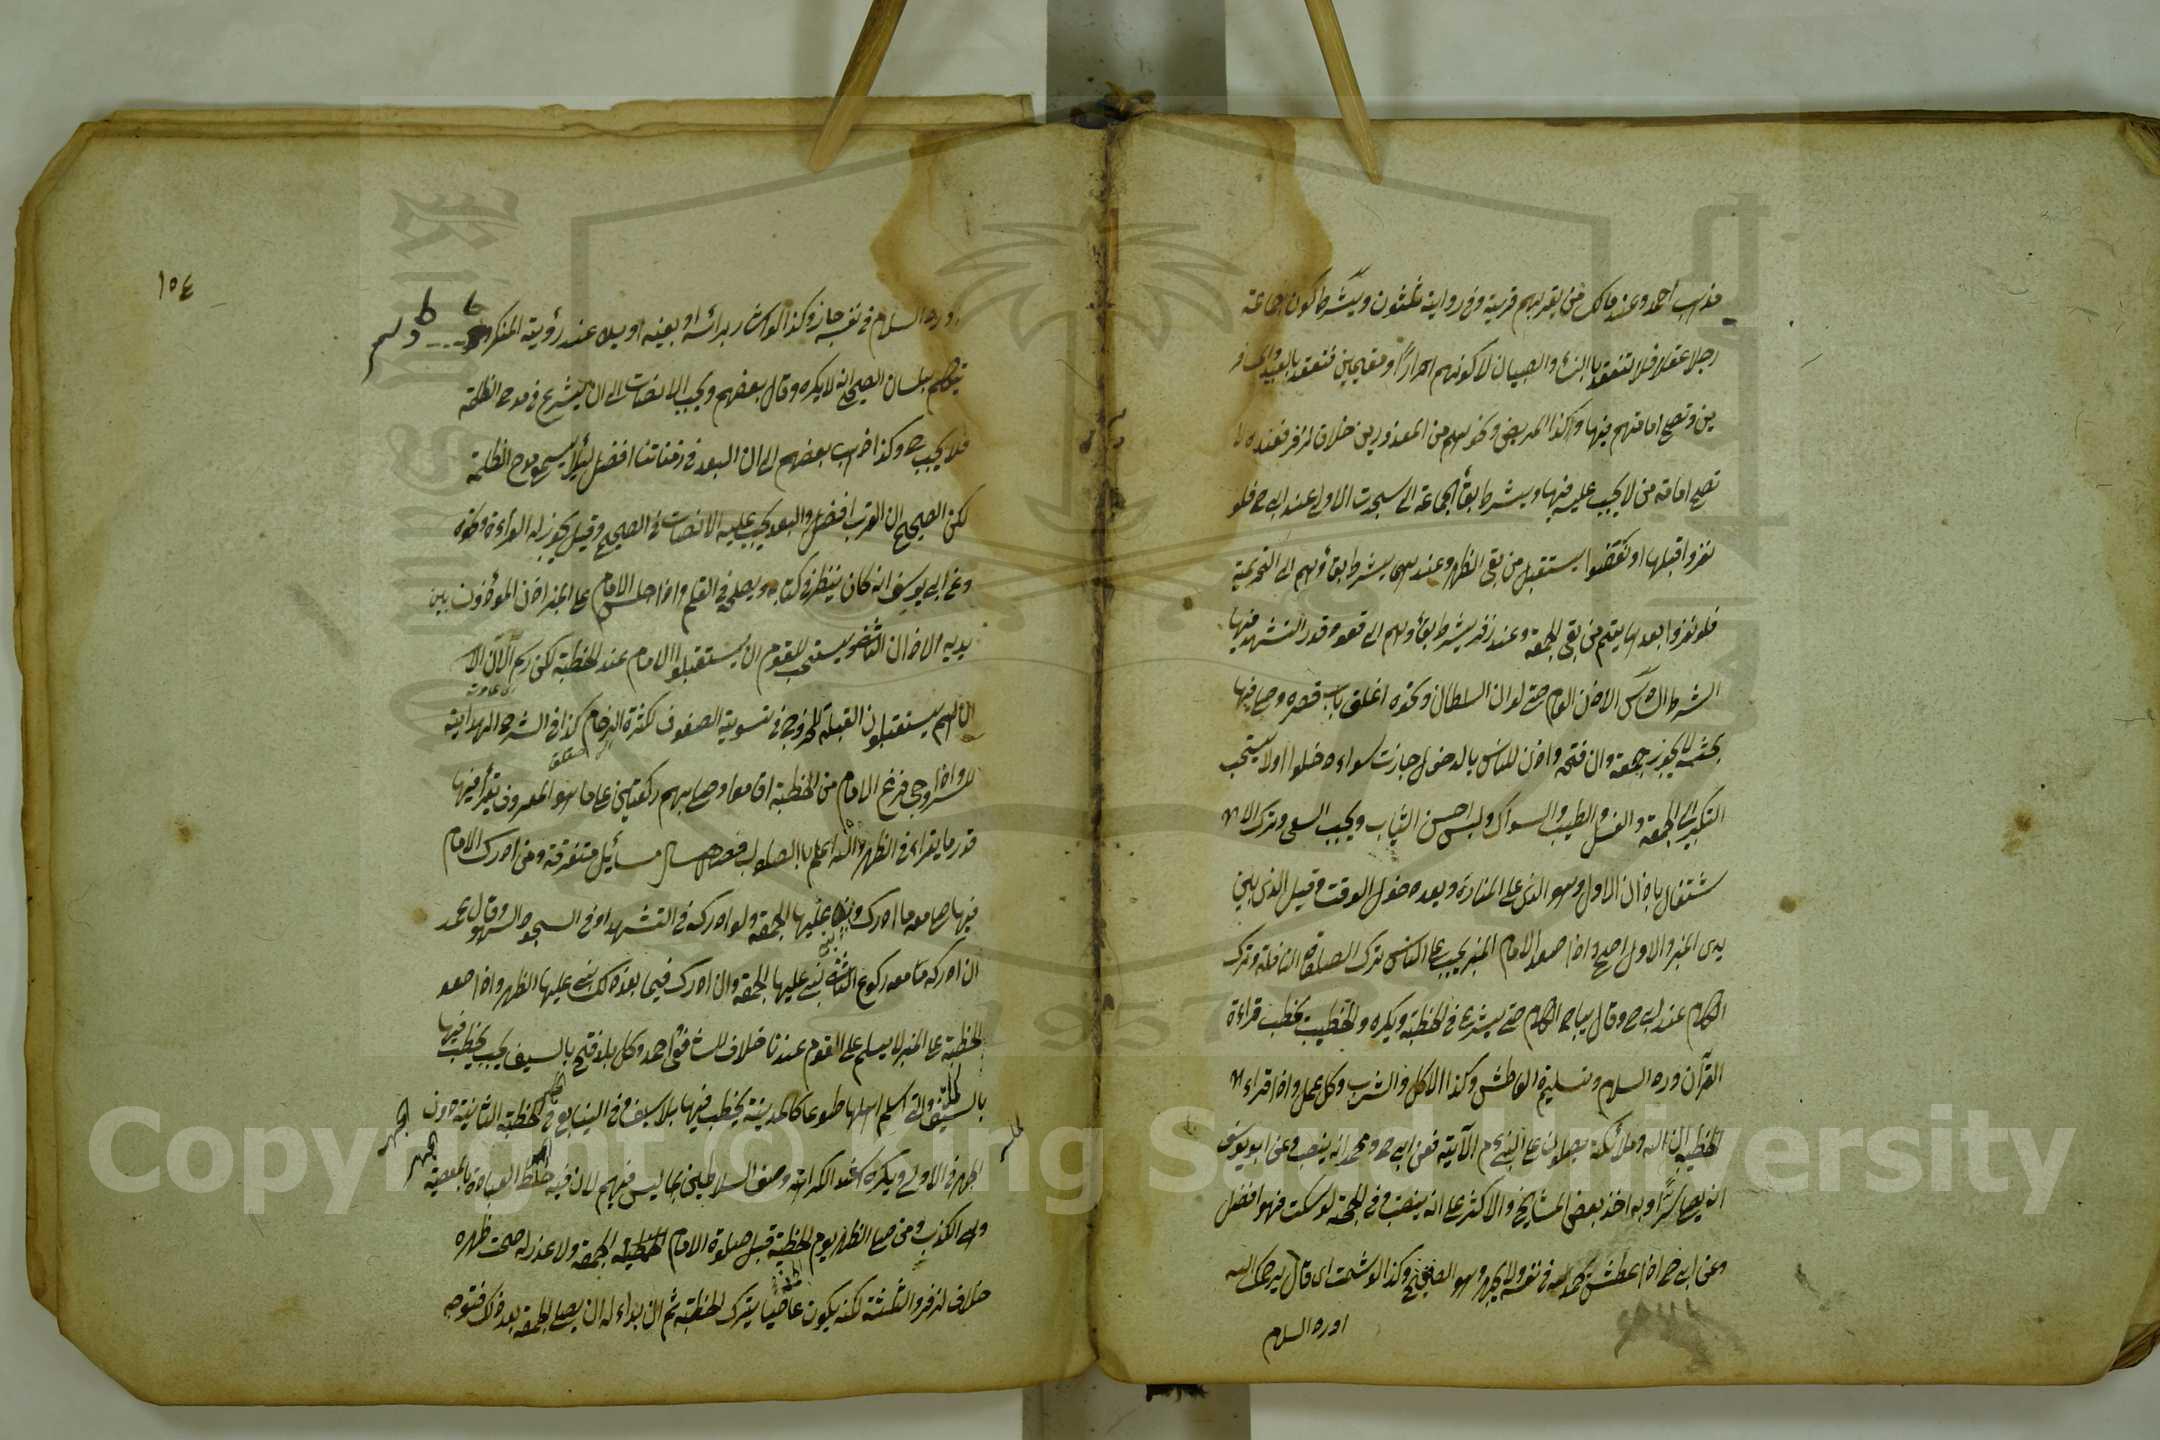 مذهب أحمد وعند مالك من يقر بهم قرية وفى رواية ثلثون ويشترط كون الجماعة
رجلا عقلا فلا تنعقد بالنساء والصبيان لا كونهم احرارًا ومقيمين فتنعقد بالعبيد والمسافر
ين وتصح امامتهم فيها وكذا المريض ونحوهم من المعذورين خلاف لزفر فعنده لا
تصح امامة من لا يجب عليه فيها ويشترط بقأ الجماعة الى سجدت الاولى عند ابى ح فلو
نفروا قبلها او نقصوا يستقبل من بقى الظهر وعندهما يشترط بقاؤهم الى التحريمة
فلو نفروا بعدها يتم من بقى الجمعة وعند زفر يشترط بقأوهم الى قعود قدر التشهد فيها
الشرط السادس الاذن العام حتى لو ان السلطان ونحوه اغلق باب قصره وصلى فيها
بحشمه لا يجوز جمعة وان فتحه واذن للناس بالدخول جازت سواء دخلوا اولا يستحب
التبكير الى الجمعة والغسل والطيب والسواك ولبس احسن الثياب ويجب السعى وترك الا
شتغال باذان الاول وهو الذى على المنارة وبعد دخول الوقت وقيل الذى بين
يدى المنبر والاول اصح واذا صعد الامام المنبر يجب على الناس ترك الصلوة النافلة وترك
الكلام عند ابى ح وقال يباح الكلام حتى يشرع فى الخطبة ويكره والخطيب يخطب قراءة
القرآن ورد السلام وتسليمة العاطش وكذا الاكل والشرب وكل عمل واذا قراء
الخطيب ان الله وملائكته يصلون على النبى م الآية فعن ابى ح ومحمد انه ينصت وعن ابو يوسف
انه يصلى سرًا وبه اخذ بعض المشايخ والاكثر على انه ينصت وفى الحجة لو سكت فهو افضل
وعن ابى ح اذا عطش يحمد لله فى نفسه ولا يجهر وهو الصحيح وكذا لو شمت اى قال يرحمك الله
اورد السلام
١٥٤
اورد السلام فى نفسه جاز وكذا لو اشار براسه او بعينه او بيده عند رؤية المنكر
يتكلم بلسان الصحيح انه لا يكره وقال بعضهم ويجب الانصات الى ان يشرع فى مدح الظلمة
فلا يجب ح وكذا ذهب بعضهم الى ان البعد فى زماننا افضل لئلا يسمع مدح الظلمة
لكن الصحيح ان القرب افضل والبعيد يجب عليه الانصات فى الصحيح وقيل يجوز له القراءة ونحوه
وعن ابى يوسف انه كان ينظر فى كتابه ويصلحه فى القلم واذا جلس الامام على المنبر اذن المؤذنون بين
يديه الاذان الثانى ويستحب للقوم ان يستقبلوا الامام عند الخطبة لكن رسم الآن الا
انهم يستقبلون القبلة للحرج فى تسوية الصفوف لكثرة الزحام كذا فى الشرح الهداية
للسروجى فرغ الامام من الخطبة اقاموا وصلى بهم ركعتين على ما هو المعروف يقرأ فيها
قدر ما يقراء فى الظهر والله اعلم بالصواب فصل مسائل متفرقة ومن ادرك الامام
فيها صلى معه ما ادرك وبنى عليها الجمعة ولو ادركه فى التشهد او فى السجود السهو وقال محمد
ان ادركه مع ركوع الثانية بنى عليها الجمعة وان ادرك فيما بعد ذلك بنى عليها الظهر واذا صعد
الخطبة على المنبر لا يسلم على القوم عندنا خلاف للشافعى واحمد وكل بلد فتح بالسيف يجب يخطب فيها
بالسيف والتى اسلم اهلها طوعا كالمدينة يخطب فيها بلا سيف وفى الينابيع فى الخطبة الثانية دون
الجهر فى الاولى ويكره اشد الكراهة وصف السلاطين بما ليس فيهم لان فيه خلط العبادة بالمعصية
وهى الكذب ومن صلى الظهر يوم الخطبة قبل صلوة الامام الجمعة ولا عذر له صحت ظهره
خلاف لزفر والثلثة لكنه يكون عاصيا بترك الخطبة ثم ان بداء له ان يصلى الجمعة بعد ذلك فتوجه